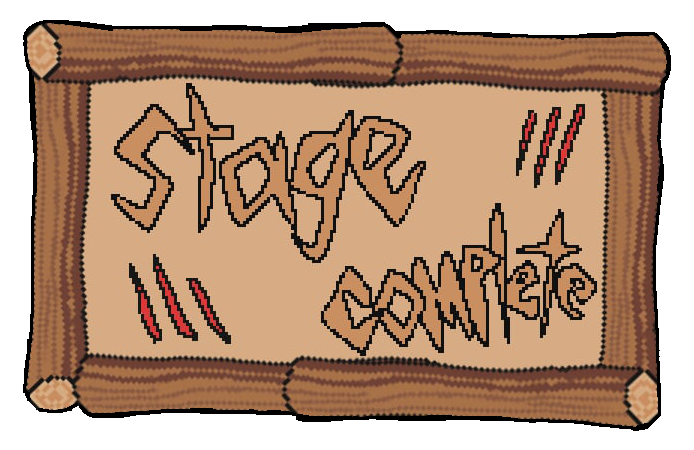 stage
complete